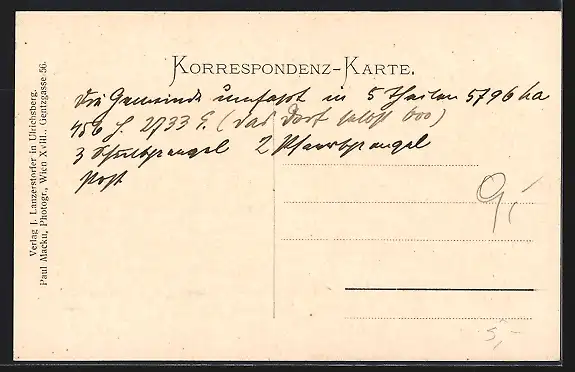 KORRESPONDENZ-KARTE.
Die Gemeinde umfasst in 5 Theilen 5796 ha
456 H. 2733 E. (das Dorf selbst 600)
3 Schulsprengel 2 Pfarrsprengel
Post
Verlag J. Lanzerstorfer in Ulrichsberg.
Paul Macku, Photogr., Wien XVIII., Gentzgasse 56.
5,-